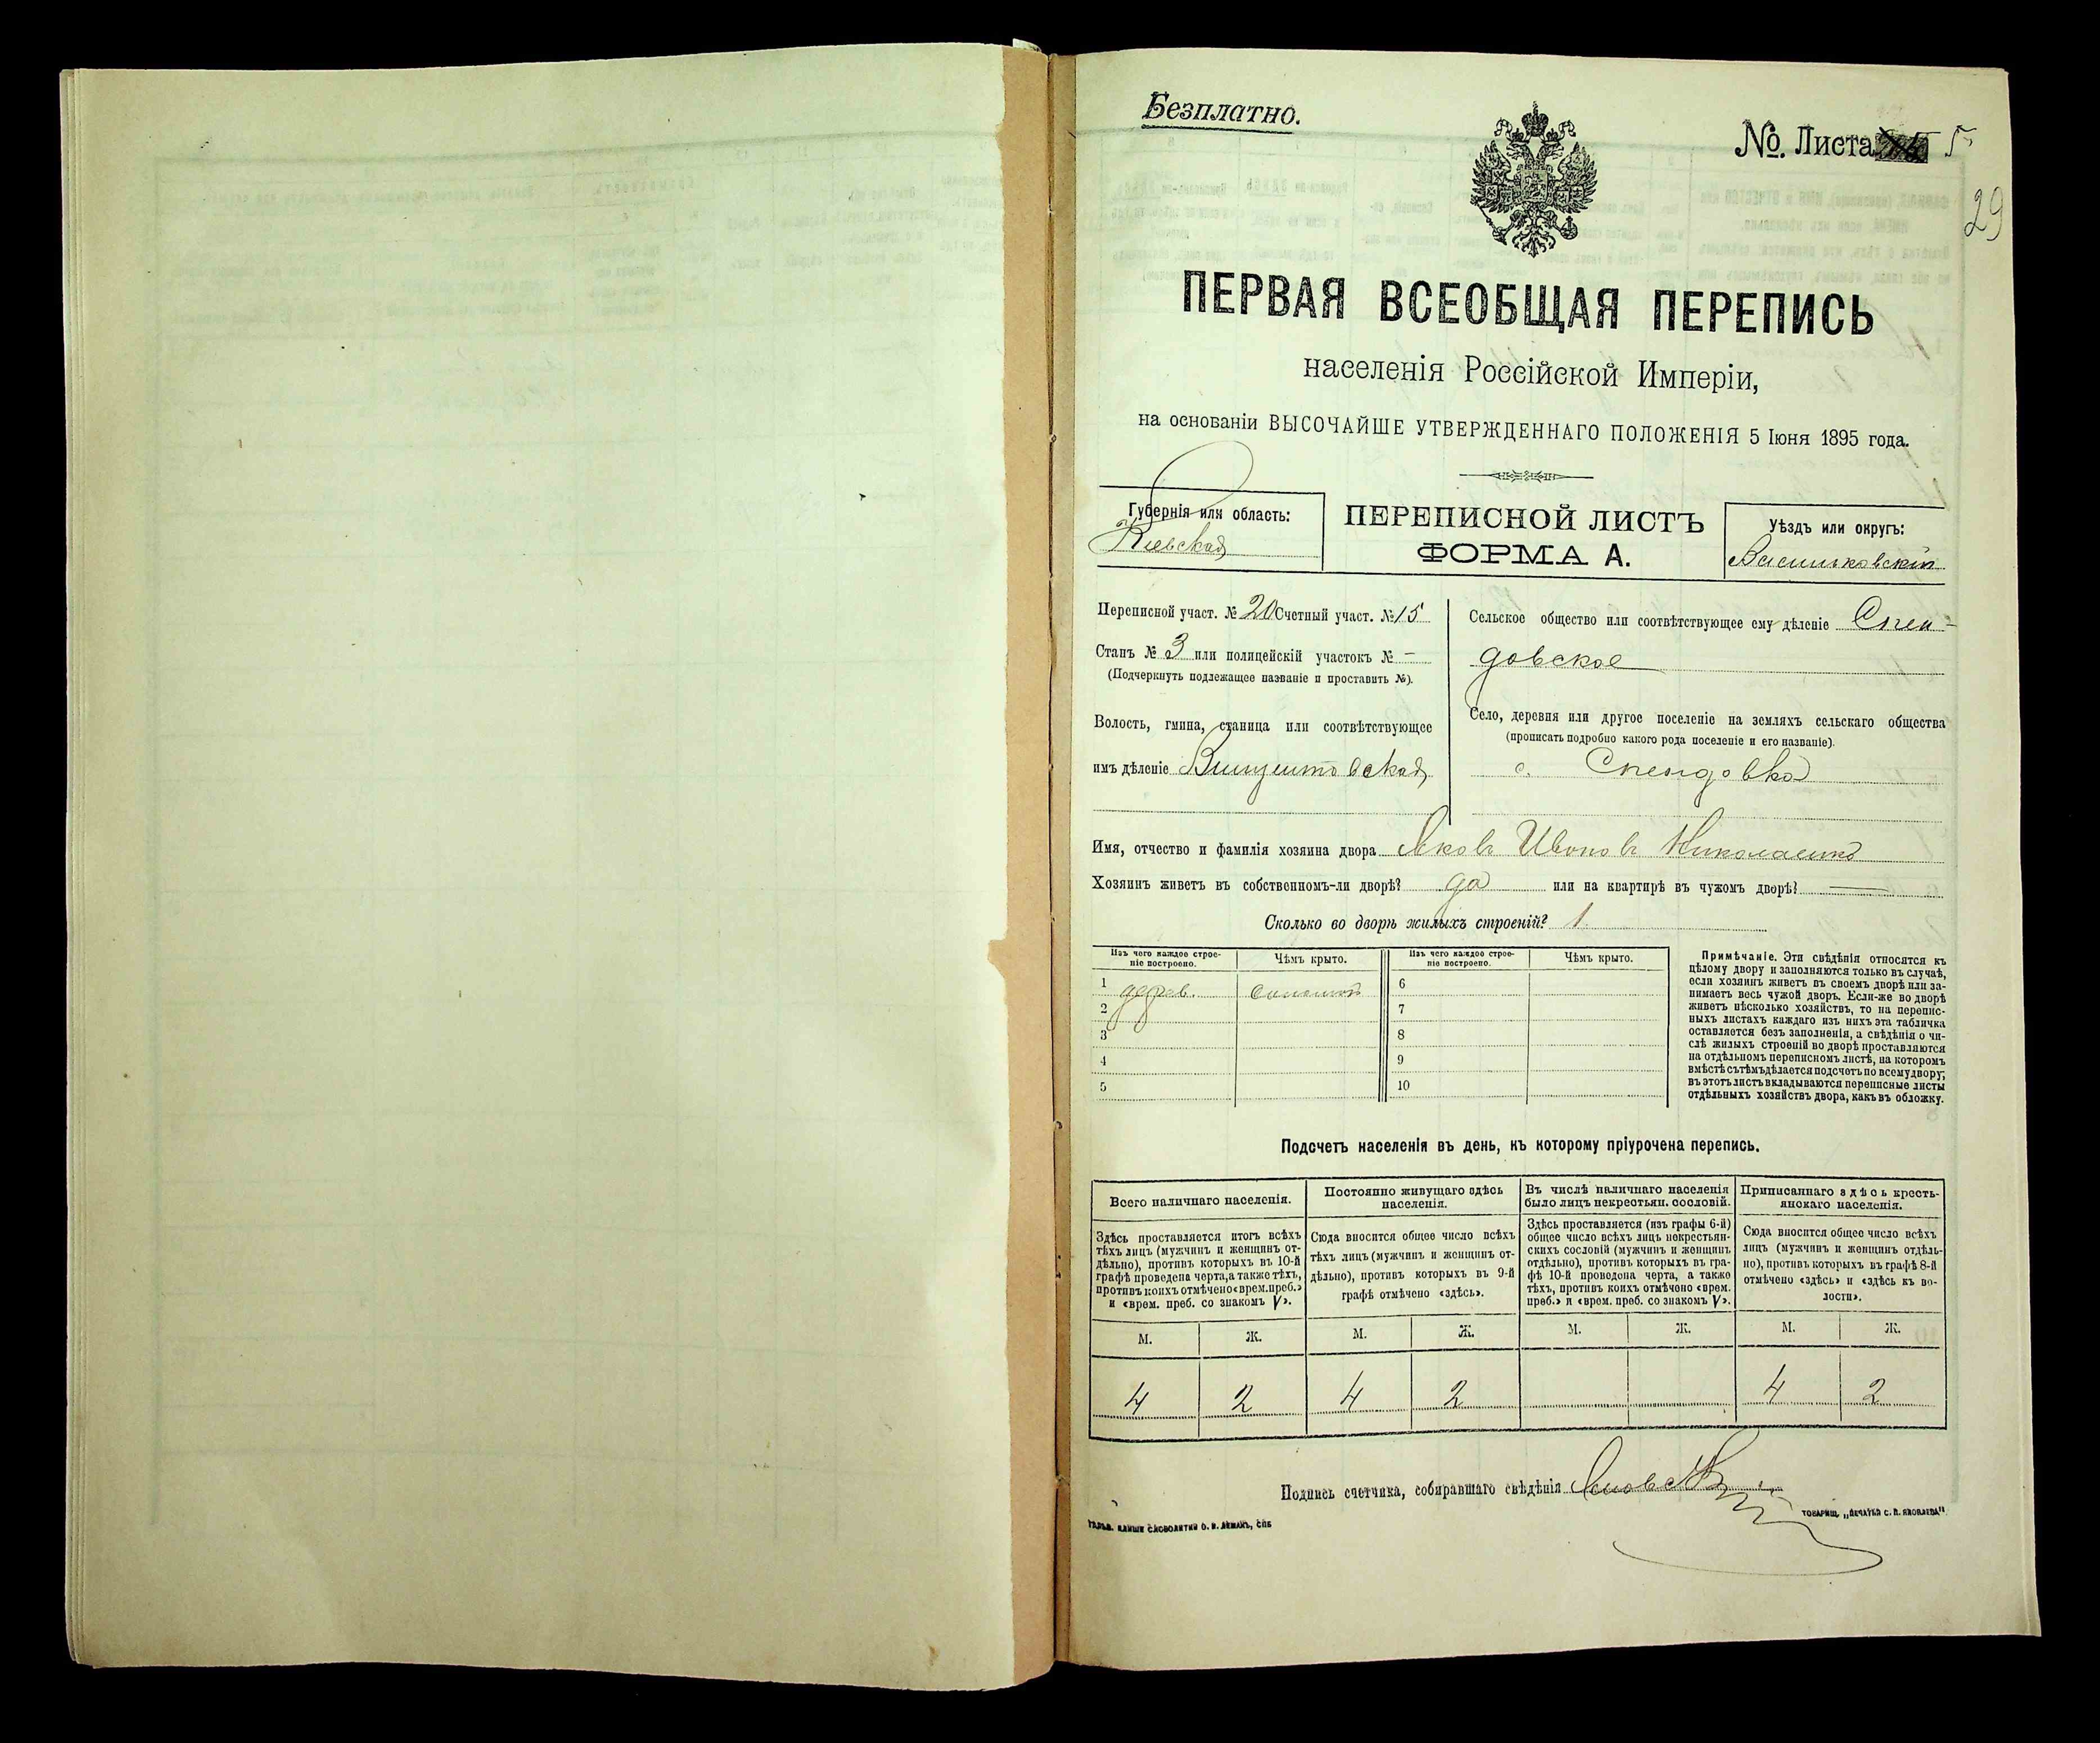 Безплатно.
№. Листа 5
29
ПЕРВАЯ ВСЕОБЩАЯ ПЕРЕПИСЬ
населенія Россійской Имперіи,
на основаніи ВЫСОЧАЙШЕ УТВЕРЖДЕННАГО ПОЛОЖЕНІЯ 5 Іюня 1895 года.
Губернія или область:
Кіевская
ПЕРЕПИСНОЙ ЛИСТЪ
ФОРМА А.
Уѣздъ или округъ:
Васильковскій
Переписной участ. № 20 Счетный участ. № 15
Станъ № 3 или полицейскій участокъ № –
(Подчеркнуть подлежащее названіе и проставить №).
Волость, гмина, станица или соотвѣтствующее
имъ дѣленіе Винцентовская
Сельское общество или соотвѣтствующее ему дѣленіе Спен-
довское
Село, деревня или другое поселеніе на земляхъ сельскаго общества
(прописать подробно какого рода поселеніе и его названіе).
с. Спендовка
Имя, отчество и фамилія хозяина двора Яковъ Ивановъ Николаенко
Хозяинъ живетъ въ собственномъ-ли дворѣ? да или на квартирѣ въ чужомъ дворѣ? —
Сколько во дворѣ жилыхъ строеній? 1
Изъ чего каждое строе-
ніе построено.
Чѣмъ крыто.
Изъ чего каждое строе-
ніе построено.
Чѣмъ крыто.
1 дерев. соломой 6
2 7
3 8
4 9
5 10
Примѣчаніе. Эти свѣдѣнія относятся къ
цѣлому двору и заполняются только въ случаѣ,
если хозяинъ живетъ въ своемъ дворѣ или за-
нимаетъ весь чужой дворъ. Если-же во дворѣ
живетъ нѣсколько хозяйствъ, то на перепис-
ныхъ листахъ каждаго изъ нихъ эта табличка
оставляется безъ заполненія, а свѣдѣнія о чи-
слѣ жилыхъ строеній во дворѣ проставляются
на отдѣльномъ переписномъ листѣ, на которомъ
вмѣстѣ съ тѣмъ дѣлается подсчетъ по всему двору;
въ этотъ листъ вкладываются переписные листы
отдѣльныхъ хозяйствъ двора, какъ въ обложку.
Подсчетъ населенія въ день, къ которому пріурочена перепись.
Всего наличнаго населенія.
Здѣсь проставляется итогъ всѣхъ
тѣхъ лицъ (мужчинъ и женщинъ от-
дѣльно), противъ которыхъ въ 10-й
графѣ проведена черта, а также тѣхъ,
противъ коихъ отмѣчено «врем. преб.»
и «врем. преб. со знакомъ V».
Постоянно живущаго здѣсь
населенія.
Сюда вносится общее число всѣхъ
тѣхъ лицъ (мужчинъ и женщинъ от-
дѣльно), противъ которыхъ въ 9-й
графѣ отмѣчено «здѣсь».
Въ числѣ наличнаго населенія
было лицъ некрестьян. сословій.
Здѣсь проставляется (изъ графы 6-й)
общее число всѣхъ лицъ некрестьян-
скихъ сословій (мужчинъ и женщинъ
отдѣльно), противъ которыхъ въ гра-
фѣ 10-й проведена черта, а также
тѣхъ, противъ коихъ отмѣчено «врем.
преб.» и «врем. преб. со знакомъ V».
Приписаннаго здѣсь кресть-
янскаго населенія.
Сюда вносится общее число всѣхъ
лицъ (мужчинъ и женщинъ отдѣль-
но), противъ которыхъ въ графѣ 8-й
отмѣчено «здѣсь» и «здѣсь къ во-
лости».
М. Ж. М. Ж. М. Ж. М. Ж.
4 2 4 2 4 2
Подпись счетчика, собиравшаго свѣдѣнія
ТОВАРИЩ. „ПЕЧАТНЯ С. П. ЯКОВЛЕВА".
КЛИШЕ СЛОВОЛИТНИ О. И. ЛЕМАНЪ, СПБ